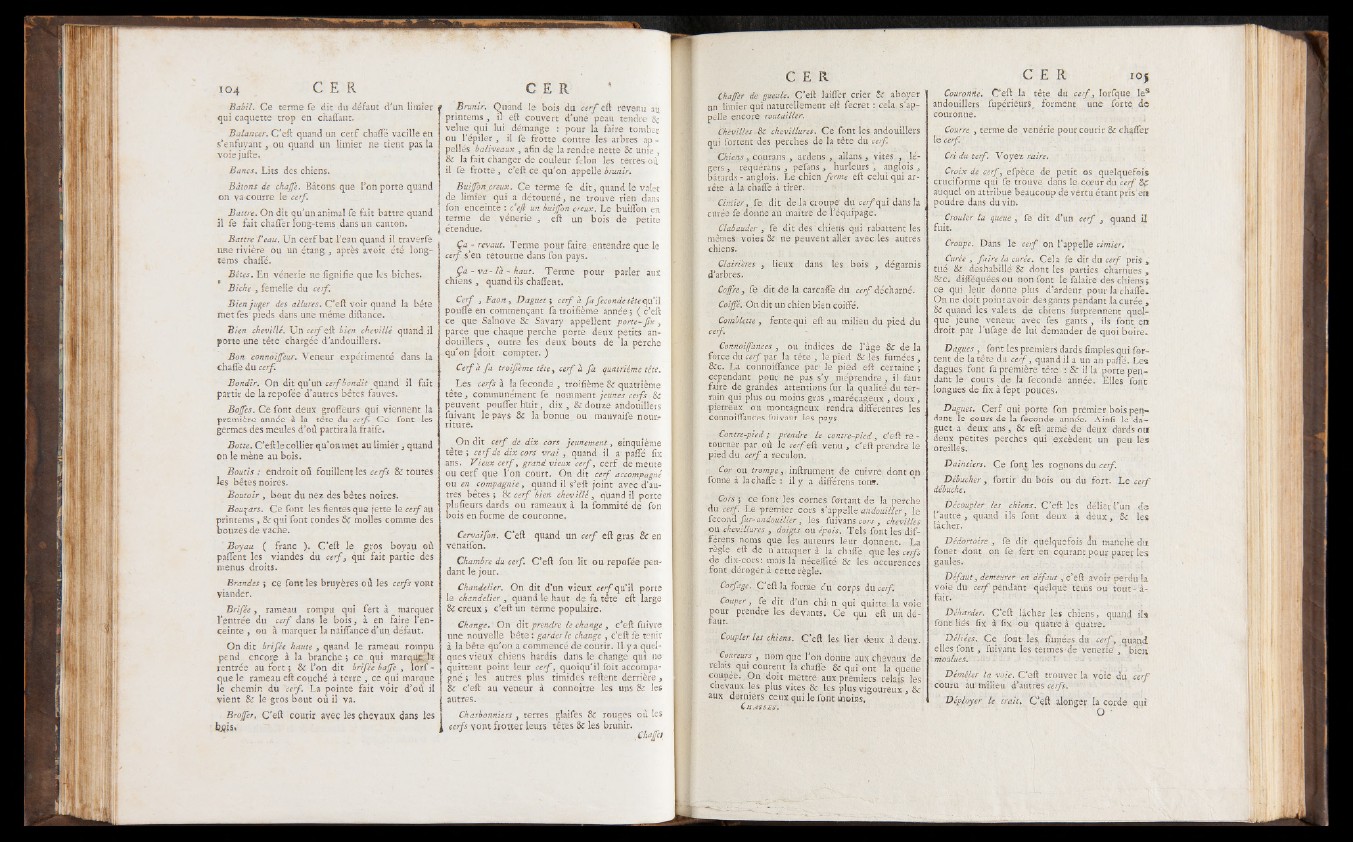 104 C E R
Babil. Ce terme ſe dit du défaut d'un limier
qui caquette trop en chaſſant.
Balancer. C'eſt quand un cerf chaſſé vacille en
s'enfuyant, ou quand un limier ne tient pas la
voie juſte.
Bancs. Lits des chiens.
Bâtons de chaſſe. Bâtons que l'on porte quand
on va courre le cerf.
Battre. On dit qu'un animal ſe fait battre quand
il ſe fait chaſſer long-tems dans un canton.
Battre l'eau. Un cerf bat l'eau quand il traverſe
une rivière ou un étang, après avoir été long-
tems chaſſé.
Bêtes. En vénerie ne ſignifie que les biches.
Biche, femelle du cerf.
Bien juger des allures. C'eſt voir quand la bête
met ſes pieds dans une même diſtance.
Bien chevillé. Un cerf eſt bien chevillé quand il
porte une tête chargée d'andouillers.
Bon connoiſſeur. Veneur expérimenté dans la
chaſſe du cerf.
Bondir. On dit qu'un cerf bondit quand il fait
partir de la repoſée d'autres bêtes fauves.
Boſſes. Ce ſont deux groſſeurs qui viennent la
première année à la tête du cerf. Ce ſont les
germes des meules d'où partira la fraiſe.
Botte. C'eſt le collier qu'on met au limier, quand
on le mène au bois.
Boutis : endroit où fouillent les cerfs & toutes
les bêtes noires.
Boutoir, bout du nez des bêtes noires.
Bouzars. Ce ſont les fientes que jette le cerf au
printems, & qui ſont rondes & molles comme des
bouzes de vache.
Boyau ( franc ). C'eſt le gros boyau où
paſſent les viandes du cerf, qui fait partie des
menus droits.
Brandes; ce ſont les bruyères où les cerfs vont
viander.
Briſée, rameau rompu qui ſert à marquer
l'entrée du cerf dans le bois, à en faire l'en-
ceinte, ou à marquer la naiſſance d'un défaut.
On dit briſée haute, quand le rameau rompu
pend encore à la branche; ce qui marque la
rentrée au fort; & l'on dit briſée baſſe, lorſ-
que le rameau eſt couché à terre, ce qui marque
le chemin du cerf. La pointe fait voir d'où il
vient & le gros bout où il va.
Broſſer. C'eſt courir avec les chevaux dans les
bois.
C E R
Brunir. Quand le bois du cerf eſt revenu au
printems, il eſt couvert d'une peau tendre &
velue qui lui démange : pour la faire tomber
ou l'épiler, il ſe frotte contre les arbres ap-
pellés baliveaux, afin de la rendre nette & unie,
& la fait changer de couleur ſelon les terres où
il ſe frotte, c'eſt ce qu'on appelle brunir.
Buiſſon creux. Ce terme ſe dit, quand le valet
de limier qui a détourné, ne trouve rien dans
ſon enceinte : c'eſt un buiſſon creux. Le buiſſon en
terme de vénerie, eſt un bois de petite
étendue.
Ça - revaut. Terme pour faire entendre que le
cerf s'en retourne dans ſon pays.
Ça - va - là - haut. Terme pour parler aux
chiens, quand ils chaſſent.
Cerf, Faon, Daguet; cerf à ſa ſeconde tête qu'il
pouſſe en commençant ſa troiſième année; ( c'eſt
ce que Salnove & Savary appellent porte-ſix,
parce que chaque perche porte deux petits an-
douillers, outre les deux bouts de la perche
qu'on doit compter. )
Cerf à ſa troiſième tête, cerf à ſa quatrième tête.
Les cerfs à la ſeconde, troiſième & quatrième
tête, communément ſe nomment jeunes cerfs &
peuvent pouſſer huit, dix, & douze andouillers
ſuivant le pays & la bonne ou mauvaiſe nour-
riture.
On dit cerf de dix cors jeunement, cinquième
tête; cerf de dix cors vrai, quand il a paſſé ſix
ans. Vieux cerf, grand vieux cerf, cerf de meute
ou cerf que l'on court. On dit cerf accompagné
ou en compagnie, quand il s'eſt joint avec d'au-
tres bêtes; & cerf bien chevillé, quand il porte
pluſieurs dards ou rameaux à la ſommité de ſon
bois en forme de couronne.
Cervaiſon. C'eſt quand un cerf eſt gras & en
venaiſon.
Chambre du cerf. C'eſt ſon lit ou repoſée pen-
dant le jour.
Chandelier. On dit d'un vieux cerf qu'il porte
le chandelier, quand le haut de ſa tête eſt large
& creux; c'eſt un terme populaire.
Change. On dit prendre le change, c'eſt ſuivre
une nouvelle bête : garder le change, c'eſt ſe tenir
à la bête qu'on a commencé de courir. Il y a quel-
ques vieux chiens hardis dans le change qui ne
quittent point leur cerf, quoiqu'il ſoit accompa-
gné; les autres plus timides reſtent derrière,
& c'eſt au veneur à connoître les uns & les
autres.
Charbonniers, terres glaiſes & rouges où les
cerfs vont frotter leurs têtes & les brunir.
Chaſſer
C E R
Chaſſer de gueule. C'eſt laiſſer crier & aboyer
un limier qui naturellement eſt ſecret : cela s'ap-
pelle encore routailler.
Chevilles & chevillures. Ce ſont les andouillers
qui ſortent des perches de la tête du cerf.
Chiens, courans, ardens, allans, vîtes, lé-
gers, requérans, peſans, hurleurs, anglois,
bâtards - anglois. Le chien ferme eſt celui qui ar-
rête à la chaſſe à tirer.
Cimier, ſe dit de la croupe du cerf qui dans la
curée ſe donne au maître de l'équipage.
Clabauder, ſe dit des chiens qui rabattent les
mêmes voies & ne peuvent aller avec les autres
chiens.
Clairières, lieux dans les bois, dégarnis
d'arbres.
Coffre, ſe dit de la carcaſſe du cerf décharné.
Coiffé. On dit un chien bien coiffé.
Comblette, fente qui eſt au milieu du pied du
cerf.
Connoiſſances, ou indices de l'âge & de la
force du cerf par la tête, le pied & les fumées,
&c. La connoiſſance par le pied eſt certaine;
cependant pour ne pas s'y méprendre, il faut
faire de grandes attentions ſur la qualité du ter-
rain qui plus ou moins gras, marécageux, doux,
pierreux ou montagneux rendra différentes les
connoiſſances ſuivant les pays.
Contre-pied; prendre le contre-pied, c'eſt re-
tourner par où le cerf eſt venu, c'eſt prendre le
pied du cerf à reculon.
Cor ou trompe, inſtrument de cuivre dont on
ſonne à la chaſſe : il y a différens tons.
Cors; ce ſont les cornes ſortant de la perche
du cerf. Le premier cors s'appelle andouiller, le
ſecond ſur-andouiller, les ſuivans cors, chevilles
ou chevillures, doigts ou épois. Tels ſont les dif-
férens noms que les auteurs leur donnent. La
règle eſt de n'attaquer à la chaſſe que les cerfs
de dix-cors : mais la néceſſité & les occurences
font déroger à cette règle.
Corſage. C'eſt la forme du corps du cerf.
Couper, ſe dit d'un chien qui quitte la voie
pour prendre les devants. Ce qui eſt un dé-
faut.
Coupler les chiens. C'eſt les lier deux à deux.
Coureurs, nom que l'on donne aux chevaux de
relais qui courent la chaſſe & qui ont la queue
coupée. On doit mettre aux premiers relais les
chevaux les plus vîtes & les plus vigoureux, &
aux derniers ceux qui le ſont moins.
CHASSES.
C E R 105
Couronne. C'eſt la tête du cerf, lorſque les
andouillers ſupérieurs forment une ſorte de
couronne.
Courre, terme de vénerie pour courir & chaſſer
le cerf.
Cri du cerf. Voyez raire.
Croix de cerf, eſpèce de petit os quelquefois
cruciforme qui ſe trouve dans le cœur du cerf &
auquel on attribue beaucoup de vertu étant pris en
poudre dans du vin.
Crouler la queue, ſe dit d'un cerf, quand il
fuit.
Croupe. Dans le cerf on l'appelle cimier.
Curée, faire la curée. Cela ſe dit du cerf pris,
tué & déshabillé & dont les parties charnues,
&c. diſſéquées ou non ſont le ſalaire des chiens;
ce qui leur donne plus d'ardeur pour la chaſſe.
On ne doit point avoir des gants pendant la curée,
& quand les valets de chiens ſurprennent quel-
que jeune veneur avec ſes gants, ils ſont en
droit par l'uſage de lui demander de quoi boire.
Dagues, ſont les premiers dards ſimples qui ſor-
tent de la tête du cerf, quand il a un an paſſé. Les
dagues ſont ſa première tête : & il la porte pen-
dant le cours de ſa ſeconde année. Elles ſont
longues de ſix à ſept pouces.
Daguet. Cerf qui porte ſon premier bois pen-
dant le cours de ſa ſeconde année. Ainſi le da-
guet a deux ans, & eſt armé de deux dards ou
deux petites perches qui excèdent un peu les
oreilles.
Daintiers. Ce ſont les rognons du cerf.
Débucher, ſortir du bois ou du fort. Le cerf
débuche.
Découpler les chiens. C'eſt les délier l'un de
l'autre, quand ils ſont deux à deux, & les
lâcher.
Dédortoire, ſe dit quelquefois du manche du
fouet dont on ſe ſert en courant pour parer les
gaules.
Défaut, demeurer en défaut, c'eſt avoir perdu la
voie du cerf pendant quelque tems ou tout-à-
fait.
Déharder. C'eſt lâcher les chiens, quand ils
ſont liés ſix à ſix ou quatre à quatre.
Déliées. Ce ſont les fumées du cerf, quand
elles ſont, ſuivant les termes de venerie, bien
moulues.
Démêler la voie. C'eſt trouver la voie du cerf
couru au milieu d'autres cerfs.
Déployer le trait. C'eſt alonger la corde qui
O